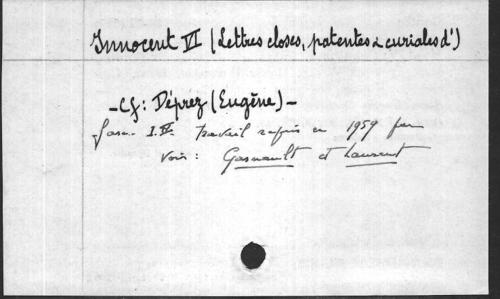 Innocent VI (Lettres closes, patentes & curiales d')
- Cf: Déprez (Eugène) -
fasc. I. Travail repris en 1959 par
voir: Gasnault et Laurent